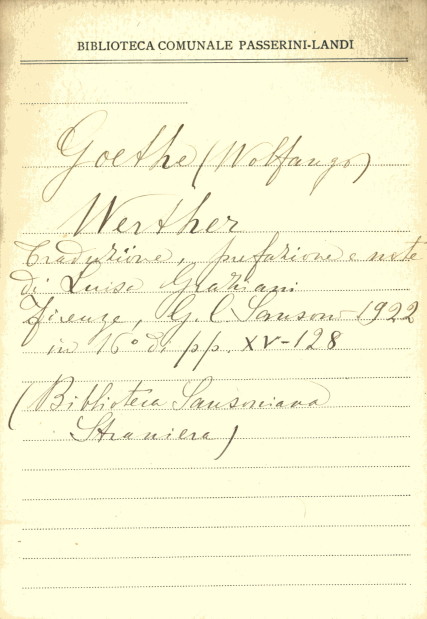 BIBLIOTECA COMUNALE PASSERINI-LANDI
Goethe (Wolfango)
Werther
Traduzione, prefazione e note
di Luisa Graziani
Firenze, G. C. Sansoni 1922
in 16° di pp. XV-128
(Biblioteca Sansoniana
Straniera)